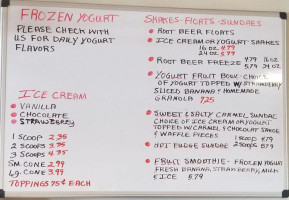 FROZEN YOGURT
PLEASE CHECK WITH
US FOR DAILY YOGURT
FLAVORS
ICE CREAM
VANILLA
CHOCOLATE
STRAWBERRY
1 SCOOP 2.35
2 SCOOPS 3.35
3 SCOOPS 4.35
SM. CONE 2.99
LG. CONE 3.99
TOPPINGS 75¢ EACH
SHAKES-FLOATS-SUNDAES
ROOT BEER FLOATS
ICE CREAM OR YOGURT SHAKES
16 OZ 4.79
24 OZ 5.79
ROOT BEER FREEZE 4.79 16 OZ
5.79 24 OZ
YOGURT FRUIT BOWL-CHOICE
OF YOGURT TOPPED W/STRAWBERRY
SLICED BANANA & HOMEMADE
GRANOLA 7.25
SWEET & SALTY CARAMEL SUNDAE
CHOICE OF ICE CREAM OR YOGURT
TOPPED W/CARAMEL & CHOCOLATE SAUCE
& WAFFLE PIECES
HOT FUDGE SUNDAE
FRUIT SMOOTHIE-FROZEN YOGURT
FRESH BANANA, STRAWBERRY, MILK
& ICE 5.79